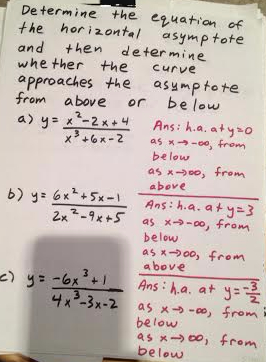 Determine the equation of
the horizontal asymptote
and then determine
whether the curve
approaches the asymptote
from above or below
a) y = (x²-2x+4)/(x³+6x-2)
Ans: h.a. at y=0
as x→-∞, from
below
as x→∞, from
above
b) y = (6x²+5x-1)/(2x²-9x+5)
Ans: h.a. at y=3
as x→-∞, from
below
as x→∞, from
above
c) y = (-6x³+1)/(4x³-3x-2)
Ans: h.a. at y=-3/2
as x→-∞, from
below
as x→∞, from
below